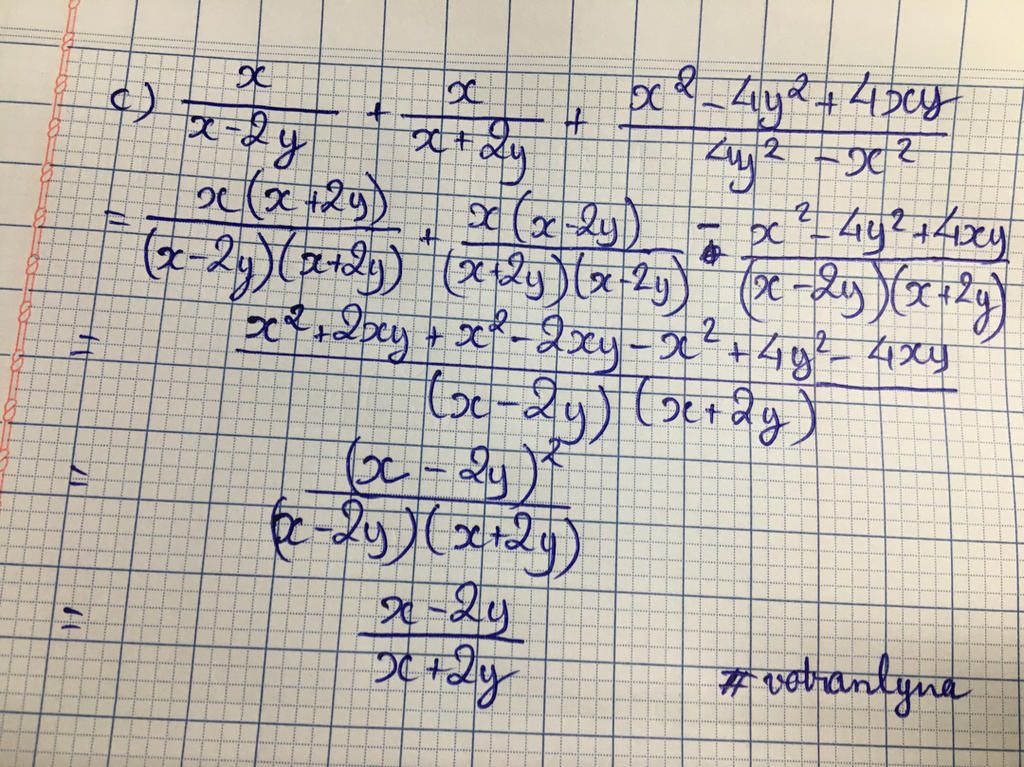 c) \frac{x}{x-2y} + \frac{x}{x+2y} + \frac{x^2-4y^2+4xy}{4y^2-x^2}
= \frac{x(x+2y)}{(x-2y)(x+2y)} + \frac{x(x-2y)}{(x+2y)(x-2y)} - \frac{x^2-4y^2+4xy}{(x-2y)(x+2y)}
= \frac{x^2+2xy+x^2-2xy-x^2+4y^2-4xy}{(x-2y)(x+2y)}
= \frac{(x-2y)^2}{(x-2y)(x+2y)}
= \frac{x-2y}{x+2y}
# votranlyna